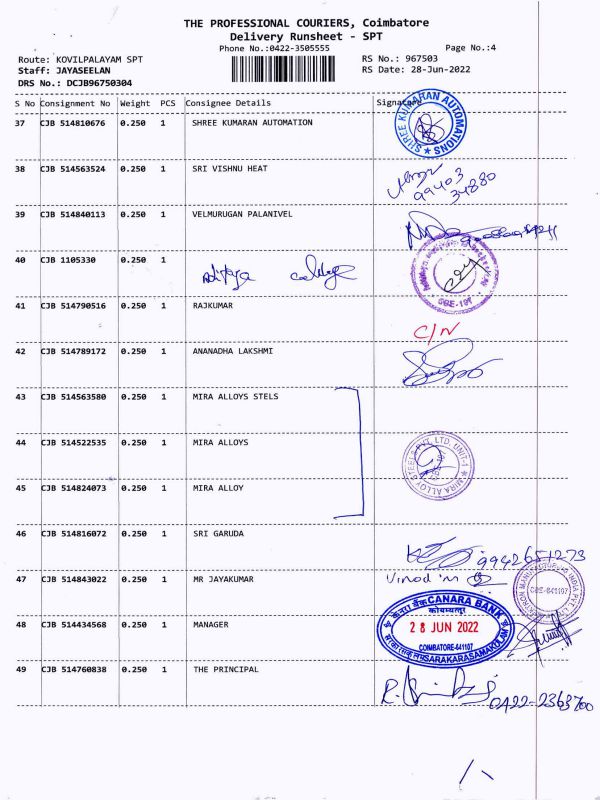 THE PROFESSIONAL COURIERS, Coimbatore
Delivery Runsheet - SPT
Phone No.:0422-3505555
Page No.:4
Route: KOVILPALAYAM SPT
RS No.: 967503
Staff: JAYASEELAN
RS Date: 28-Jun-2022
DRS No.: DCJB96750304
S No Consignment No Weight PCS Consignee Details Signature
37 CJB 514810676 0.250 1 SHREE KUMARAN AUTOMATION
SHREE KUMARAN AUTOMATIONS
38 CJB 514563524 0.250 1 SRI VISHNU HEAT
99403
34880
39 CJB 514840113 0.250 1 VELMURUGAN PALANIVEL
40 CJB 1105330 0.250 1
college
CBE-107
41 CJB 514790516 0.250 1 RAJKUMAR
C/N
42 CJB 514789172 0.250 1 ANANADHA LAKSHMI
43 CJB 514563580 0.250 1 MIRA ALLOYS STELS
44 CJB 514522535 0.250 1 MIRA ALLOYS
MIRA ALLOY STEELS PVT. LTD. UNIT-1
45 CJB 514824073 0.250 1 MIRA ALLOY
46 CJB 514816072 0.250 1 SRI GARUDA
9942651273
47 CJB 514843022 0.250 1 MR JAYAKUMAR
Vinod
CBE-641107
48 CJB 514434568 0.250 1 MANAGER
केनरा बैंक CANARA BANK
कोयम्बत्तूर
28 JUN 2022
COIMBATORE-641107
SARKARASAMAKULAM
49 CJB 514760838 0.250 1 THE PRINCIPAL
0422-2363700